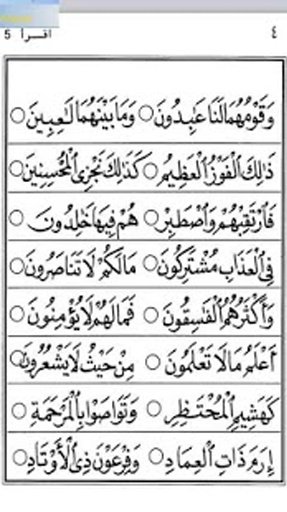 ٤ اقرأ 5
وَقَوْمُهُمَا لَنَا عَٰبِدُونَ ○ وَمَا بَيْنَهُمَا لَٰعِبِينَ ○
ذَٰلِكَ الْفَوْزُ الْعَظِيمُ ○ كَذَٰلِكَ نَجْزِي الْمُحْسِنِينَ ○
فَارْتَقِبْهُمْ وَاصْطَبِرْ ○ هُمْ فِيهَا خَٰلِدُونَ ○
فِي الْعَذَابِ مُشْتَرِكُونَ ○ مَا لَكُمْ لَا تَنَاصَرُونَ ○
وَأَكْثَرُهُمُ الْفَٰسِقُونَ ○ فَمَا لَهُمْ لَا يُؤْمِنُونَ ○
أَعْلَمُ مَا لَا تَعْلَمُونَ ○ مِنْ حَيْثُ لَا يَشْعُرُونَ ○
كَهَشِيمِ الْمُحْتَظِرِ ○ وَتَوَاصَوْا بِالْمَرْحَمَةِ ○
إِرَمَ ذَاتِ الْعِمَادِ ○ وَفِرْعَوْنَ ذِي الْأَوْتَادِ ○